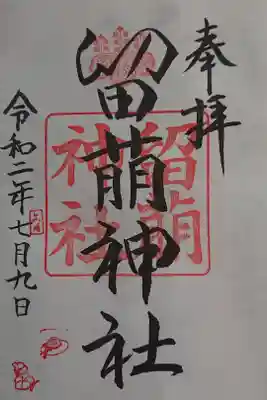 奉拝
留萌神社
留萌
神社
令和二年七月九日